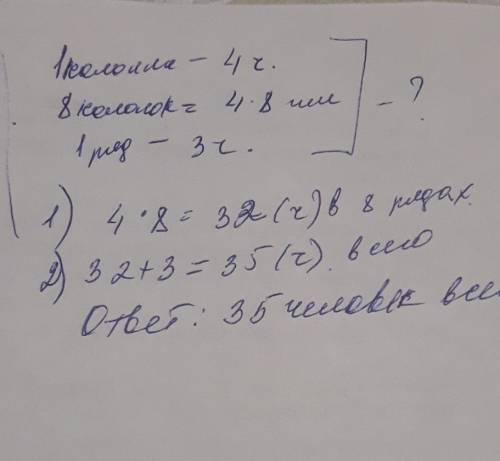 1 колонна – 4 ч.
8 колонок = 4·8 чел – ?
1 ряд – 3 ч.
1) 4·8 = 32 (ч) в 8 рядах.
2) 32+3 = 35 (ч) всего
Ответ: 35 человек все